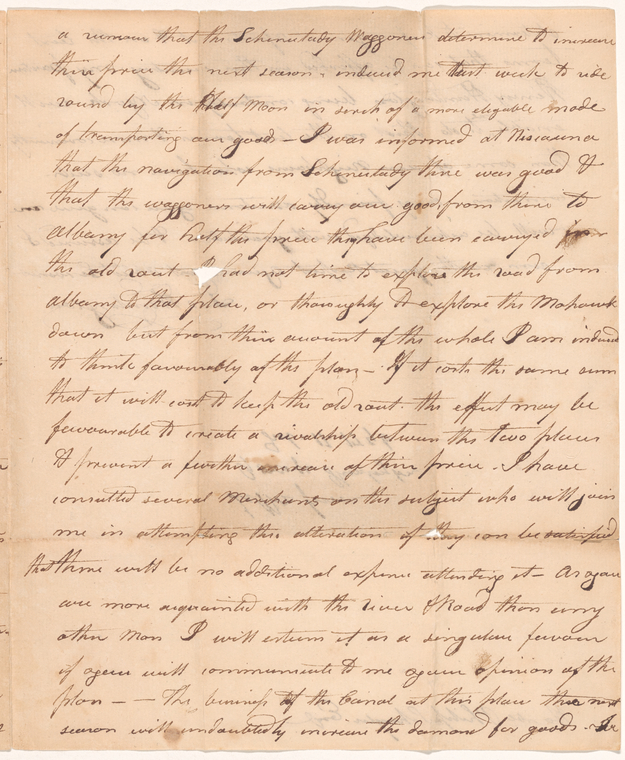 a rumour that the Schenectady Waggoners determine to increase
their price the next season. induced me last week to ride
round by the Half Moon in serch of a more eligable mode
of transporting our goods — I was informed at Niscauna
that the navigation from Schenectady there was good &
that the waggoners will carry our goods from there to
Albany for half the price they have been carryed from
the old rout I had not time to explore the road from
Albany to that place, or thoroughly to explore the Mohawk
down but from their account of the whole I am induced
to think favourably of the plan — If it costs the same sum
that it will cost to keep the old rout. the effect may be
favourable to create a rivalship between the two places
& prevent a further increase of their price. I have
consulted several Merchants on the subject who will join
me in attempting this alteration if they can be satisfied
that there will be no additional expence attending it — As
are more acquainted with the river & Road than any
other Man I will esteem it as a singular favour
if will communicate to me opinion of the
plan — — The business of the Canal at this place the next
season will undoubtedly increase the demand for goods.